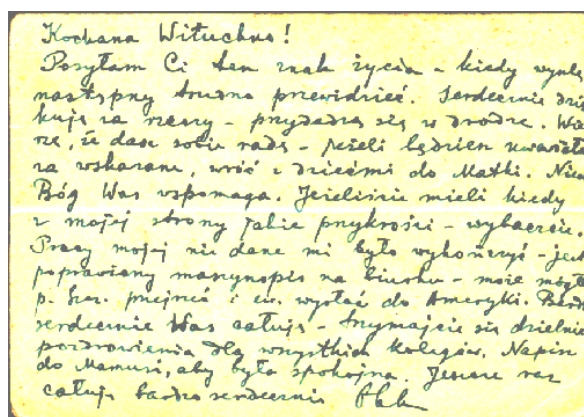 Kochana Wituchno!
Posyłam Ci ten znak życia - kiedy wyślę
następny trudno przewidzieć. Serdecznie dzię
kuję za rzeczy - przydadzą się w drodze. Wie
rzę, że dasz sobie radę - jeżeli będziesz uważała
za wskazane, wróć z dziećmi do Matki. Niech
Bóg Was wspomaga. Jeżeliście mieli kiedy
z mojej strony jakie przykrości - wybaczcie.
Pracy mojej nie dane mi było wykończyć - jest
poprawiony maszynopis na biurku - może mógłby
p. Szcz. przejrzeć i ew. wysłać do Ameryki. Bardzo
serdecznie Was całuję - trzymajcie się dzielnie
pozdrowienia dla wszystkich kolegów. Napisz
do Mamusi, aby była spokojna. Jeszcze raz
całuję bardzo serdecznie